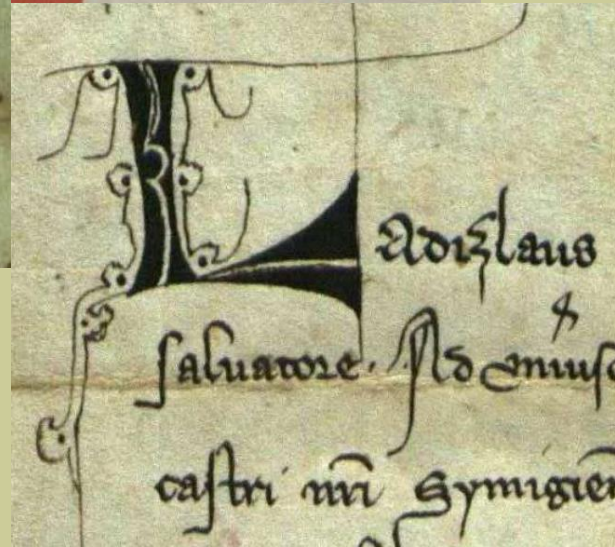 Ladizlaus
salvatore. Ad
castri nr̄i Symigien